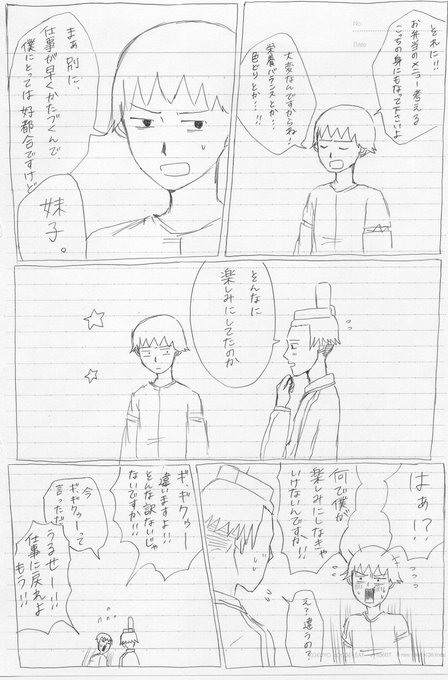 それに!!
お弁当のメニュー考える
こっちの身にもなって下さいよ
大変なんですからね!
栄養バランスとか…
色どりとか…!!
まぁ 別に、
仕事が早くかたづくんで、
僕にとっては好都合ですけど
妹子。
そんなに
楽しみにしてたのか
はぁ!?
何で僕が
楽しみにしなきゃ
いけないんですか!!
え?違うの?
ギ、ギクゥー
違いますよ!!
そんな訳ないじゃ
ないですか!!
今
ギギクゥーって
言っただ
うるせー!!
仕事に戻れよ
もう!!
No.
Date